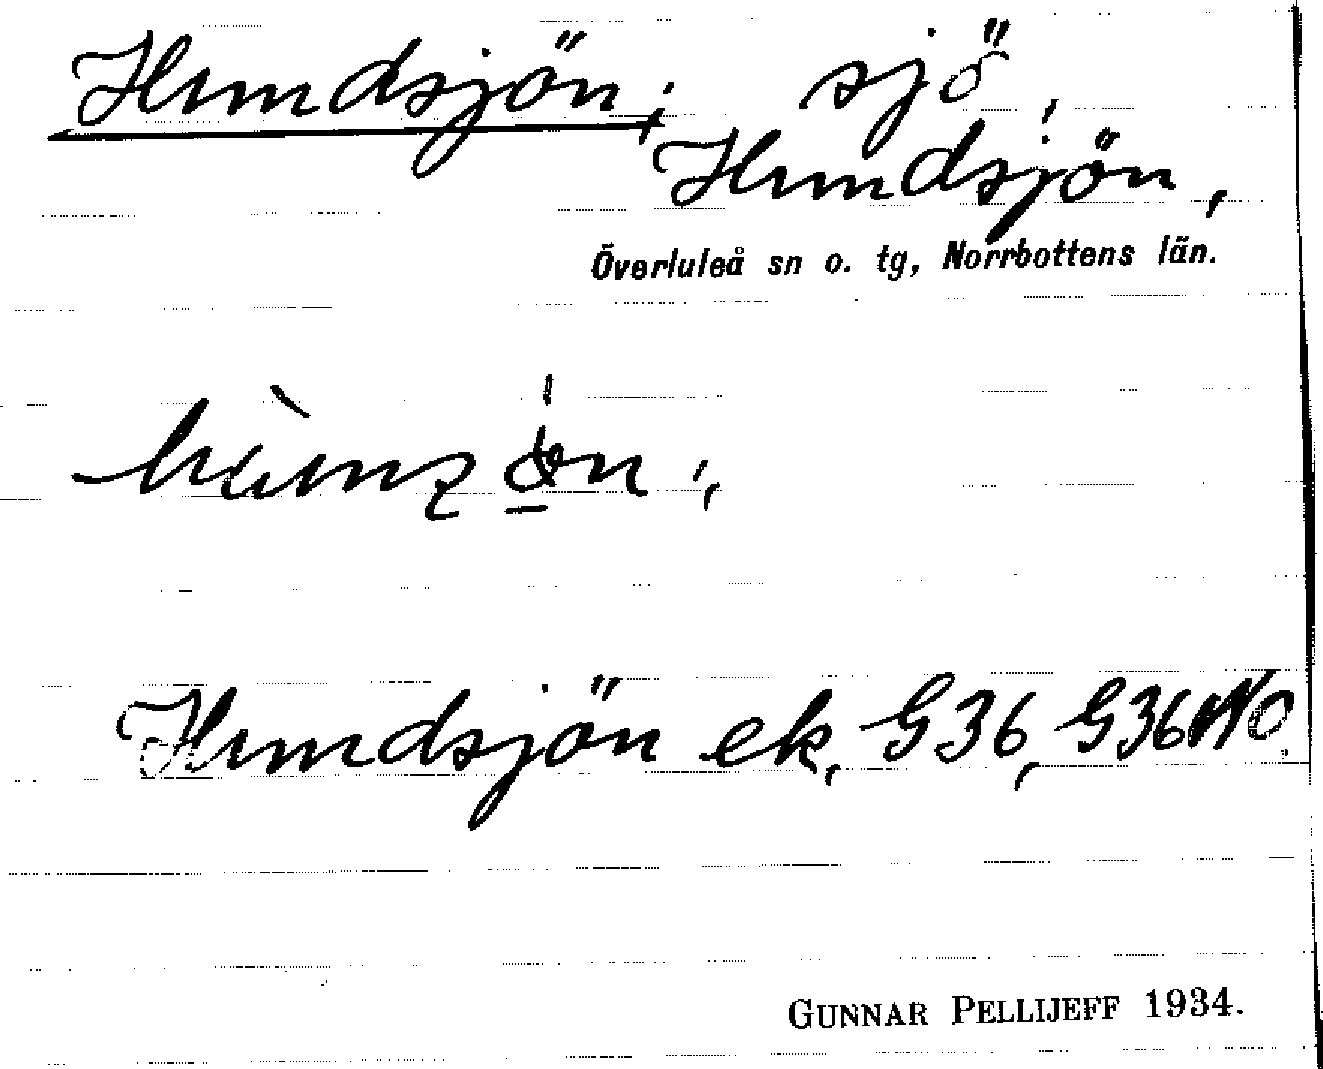 Hundsjön; sjö,
Hundsjön,
Överluleå sn o. tg, Norrbottens län.
Hundsjön ek, G36, G36
GUNNAR PELLIJEFF 1934.